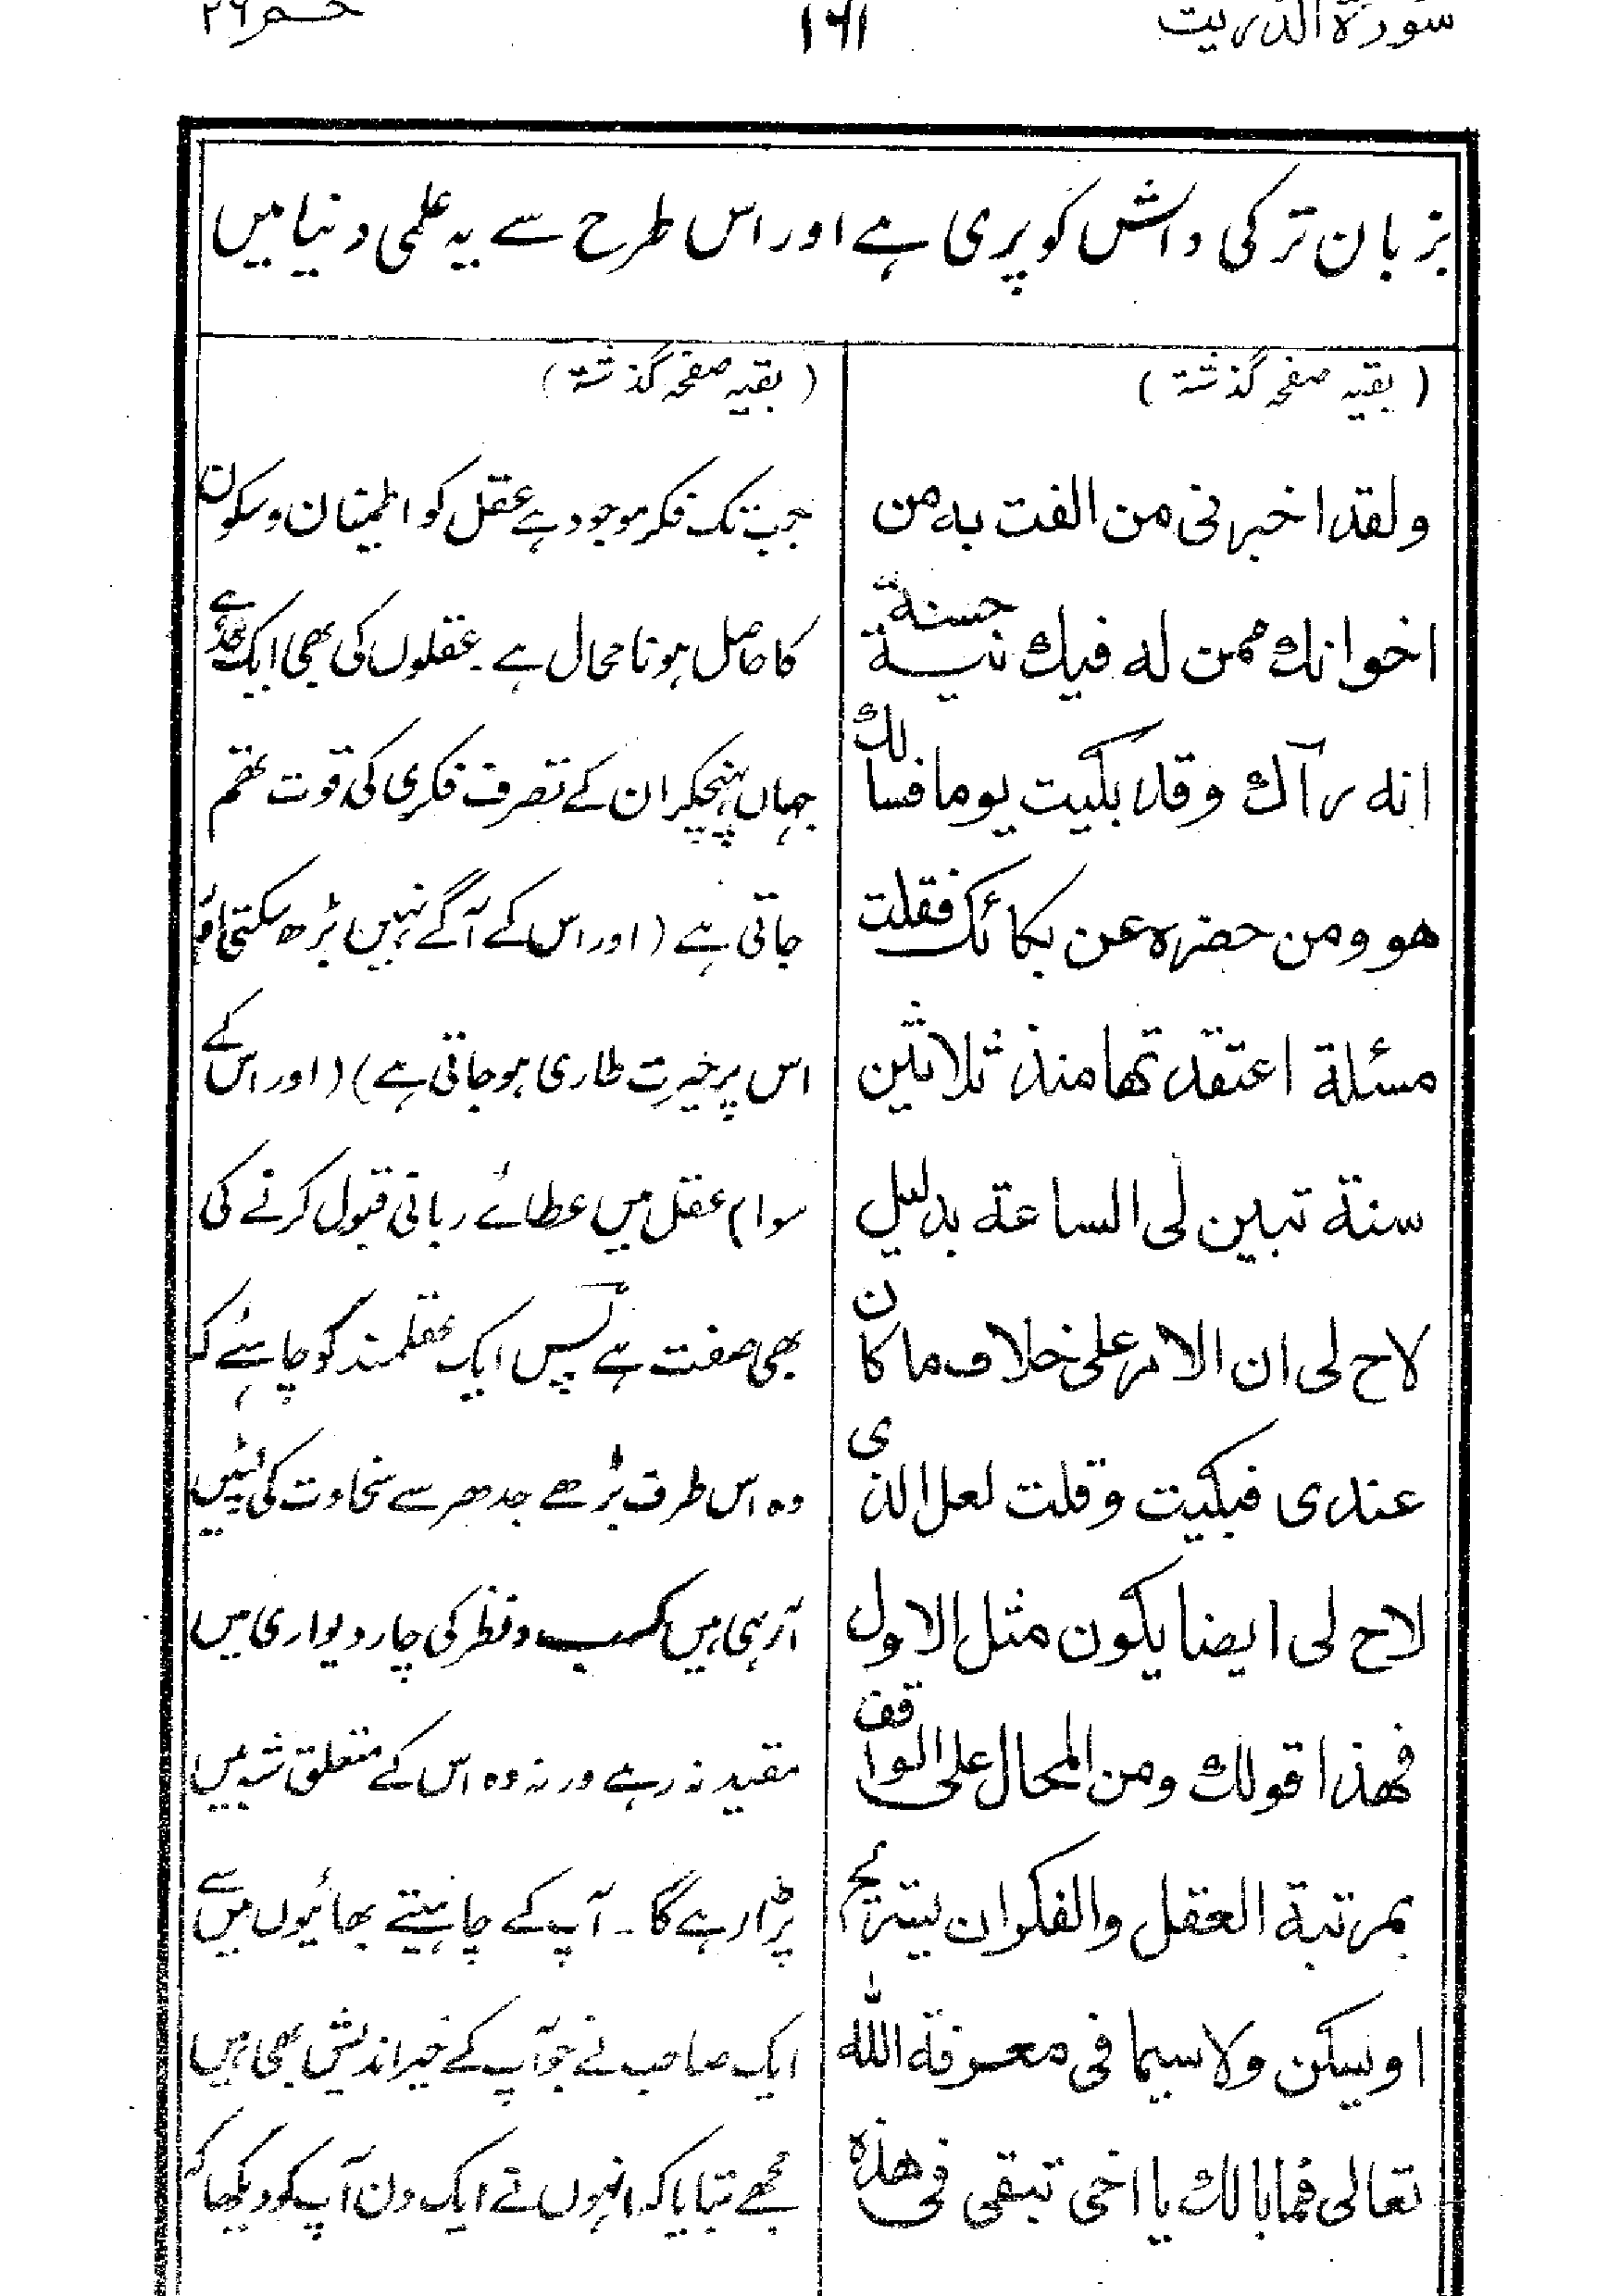 سورة الذریت ۱۶۱ حٰم ۲۶
بزبان ترکی دانش کو پری ہے اور اس طرح سے یہ علمی دنیا میں
(بقیہ صفحہ گذشتہ)
ولقد اخبرنی من الفت به من
اخوانك ممن له فیك نیة حسنة
انه رآك وقد بکیت یوما فسالك
هو ومن حضره عن بکائك فقلت
مسئلة اعتقدتها منذ ثلاثین
سنة تبین لی الساعة بدلیل
لاح لی ان الامر علی خلاف ما کان
عندی فبکیت وقلت لعل الذی
لاح لی ایضا یکون مثل الاول
فهذا قولك ومن المحال علی الواقف
بمرتبة العقل والفکر ان یستریح
او یسکن ولا سیما فی معرفة الله
تعالی فما بالك یا اخی تبقی فی هذه
(بقیہ صفحہ گذشتہ)
جب تک فکر موجود ہے عقل کو اطمینان وسکون
کا حاصل ہونا محال ہے۔ عقلوں کی بھی ایک حد ہے
جہاں پہنچکر ان کے تصرف فکری کی قوت تھم
جاتی ہے (اور اس کے آگے نہیں بڑھ سکتی
اس پر حیرت طاری ہو جاتی ہے) (اور اس کے
سوا) عقل میں عطائے ربانی قبول کرنے کی
بھی صفت ہے پس ایک عقلمند کو چاہئے کہ
وہ اس طرف بڑھے جدھر سے سخاوت کی لپٹیں
آرہی ہیں کسب ونظر کی چار دیواری میں
مقید نہ رہے ورنہ وہ اس کے متعلق شبہ میں
پڑا رہے گا۔ آپ کے چاہیتے بھائیوں میں سے
ایک صاحب نے جو آپ کے خیر اندیش بھی ہیں
مجھے بتایا کہ انہوں نے ایک دن آپ کو دیکھا کہ